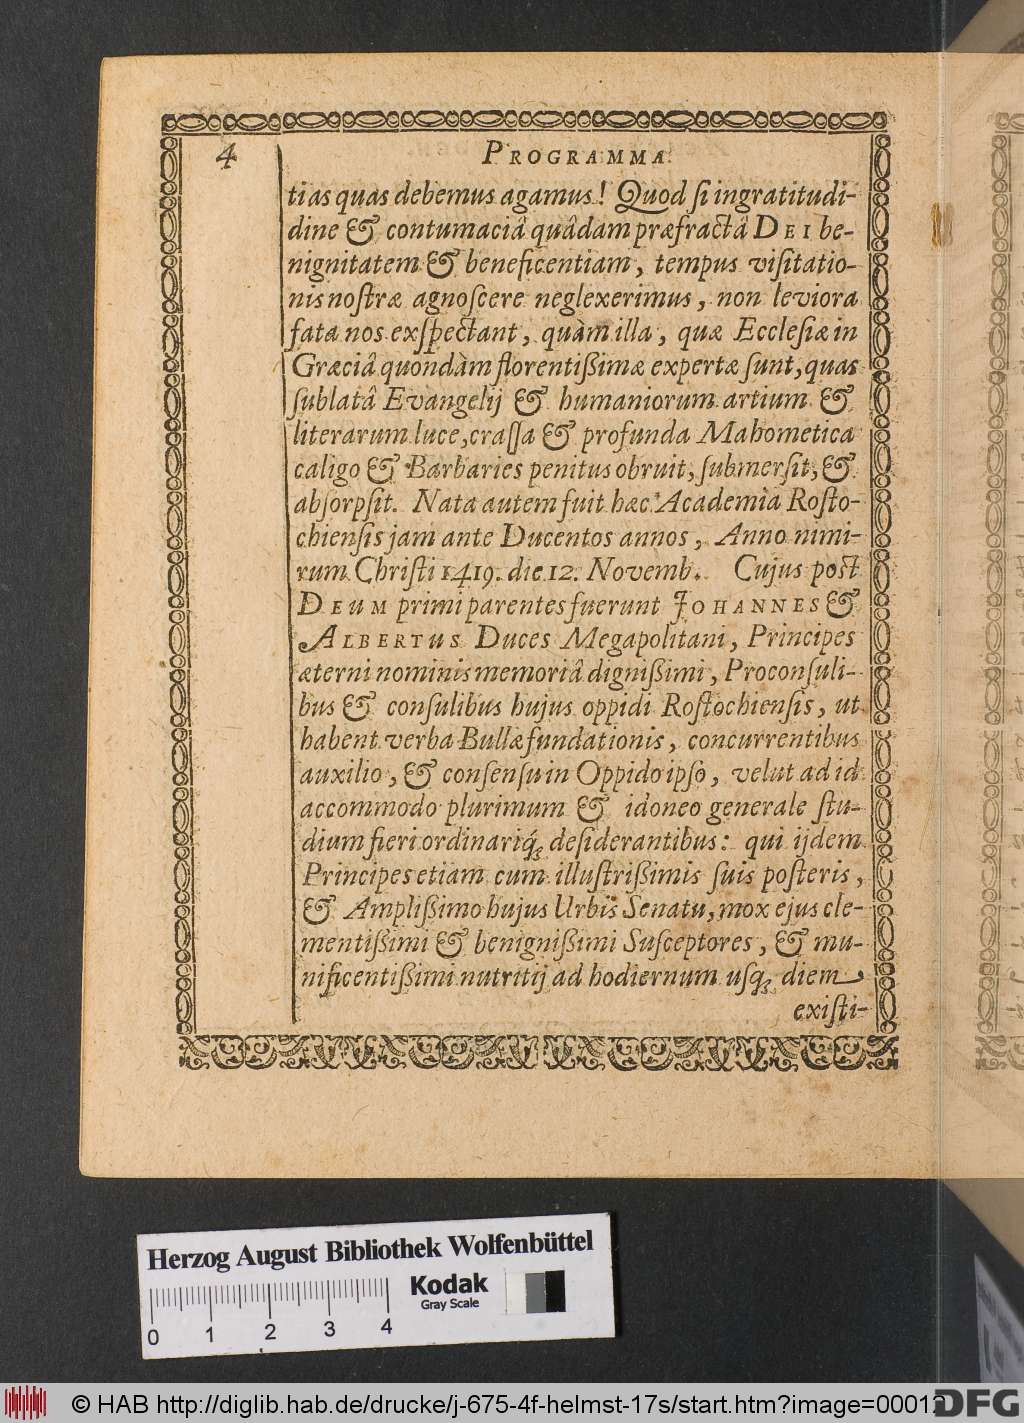 4 PROGRAMMA.
tias quas debemus agamus! Quod si ingratitudi-
dine & contumaciâ quâdam præfractâ DEI be-
nignitatem & beneficentiam, tempus visitatio-
nis nostræ agnoscere neglexerimus, non leviora
fata nos exspectant, quàm illa, quæ Ecclesiæ in
Græciâ quondàm florentißimæ expertæ sunt, quas
sublatâ Evangelij & humaniorum artium &
literarum luce, crassa & profunda Mahometica
caligo & Barbaries penitus obruit, submersit, &
absorpsit. Nata autem fuit hæc Academia Rosto-
chiensis jam ante Ducentos annos, Anno nimi-
rum Christi 1419. die 12. Novemb. Cujus post
DEUM primi parentes fuerunt JOHANNES &
ALBERTUS Duces Megapolitani, Principes
æterni nominis memoriâ dignißimi, Proconsuli-
bus & consulibus hujus oppidi Rostochiensis, ut
habent verba Bullæ fundationis, concurrentibus
auxilio, & consensu in Oppido ipso, velut ad id
accommodo plurimum & idoneo generale stu-
dium fieri ordinariq́; desiderantibus: qui ijdem
Principes etiam cum illustrißimis suis posteris,
& Amplißimo hujus Urbis Senatu, mox ejus cle-
mentißimi & benignißimi Susceptores, & mu-
nificentißimi nutritij ad hodiernum usq; diem
existi-
Herzog August Bibliothek Wolfenbüttel
Kodak
Gray Scale
0 1 2 3 4
© HAB http://diglib.hab.de/drucke/j-675-4f-helmst-17s/start.htm?image=00012
DFG